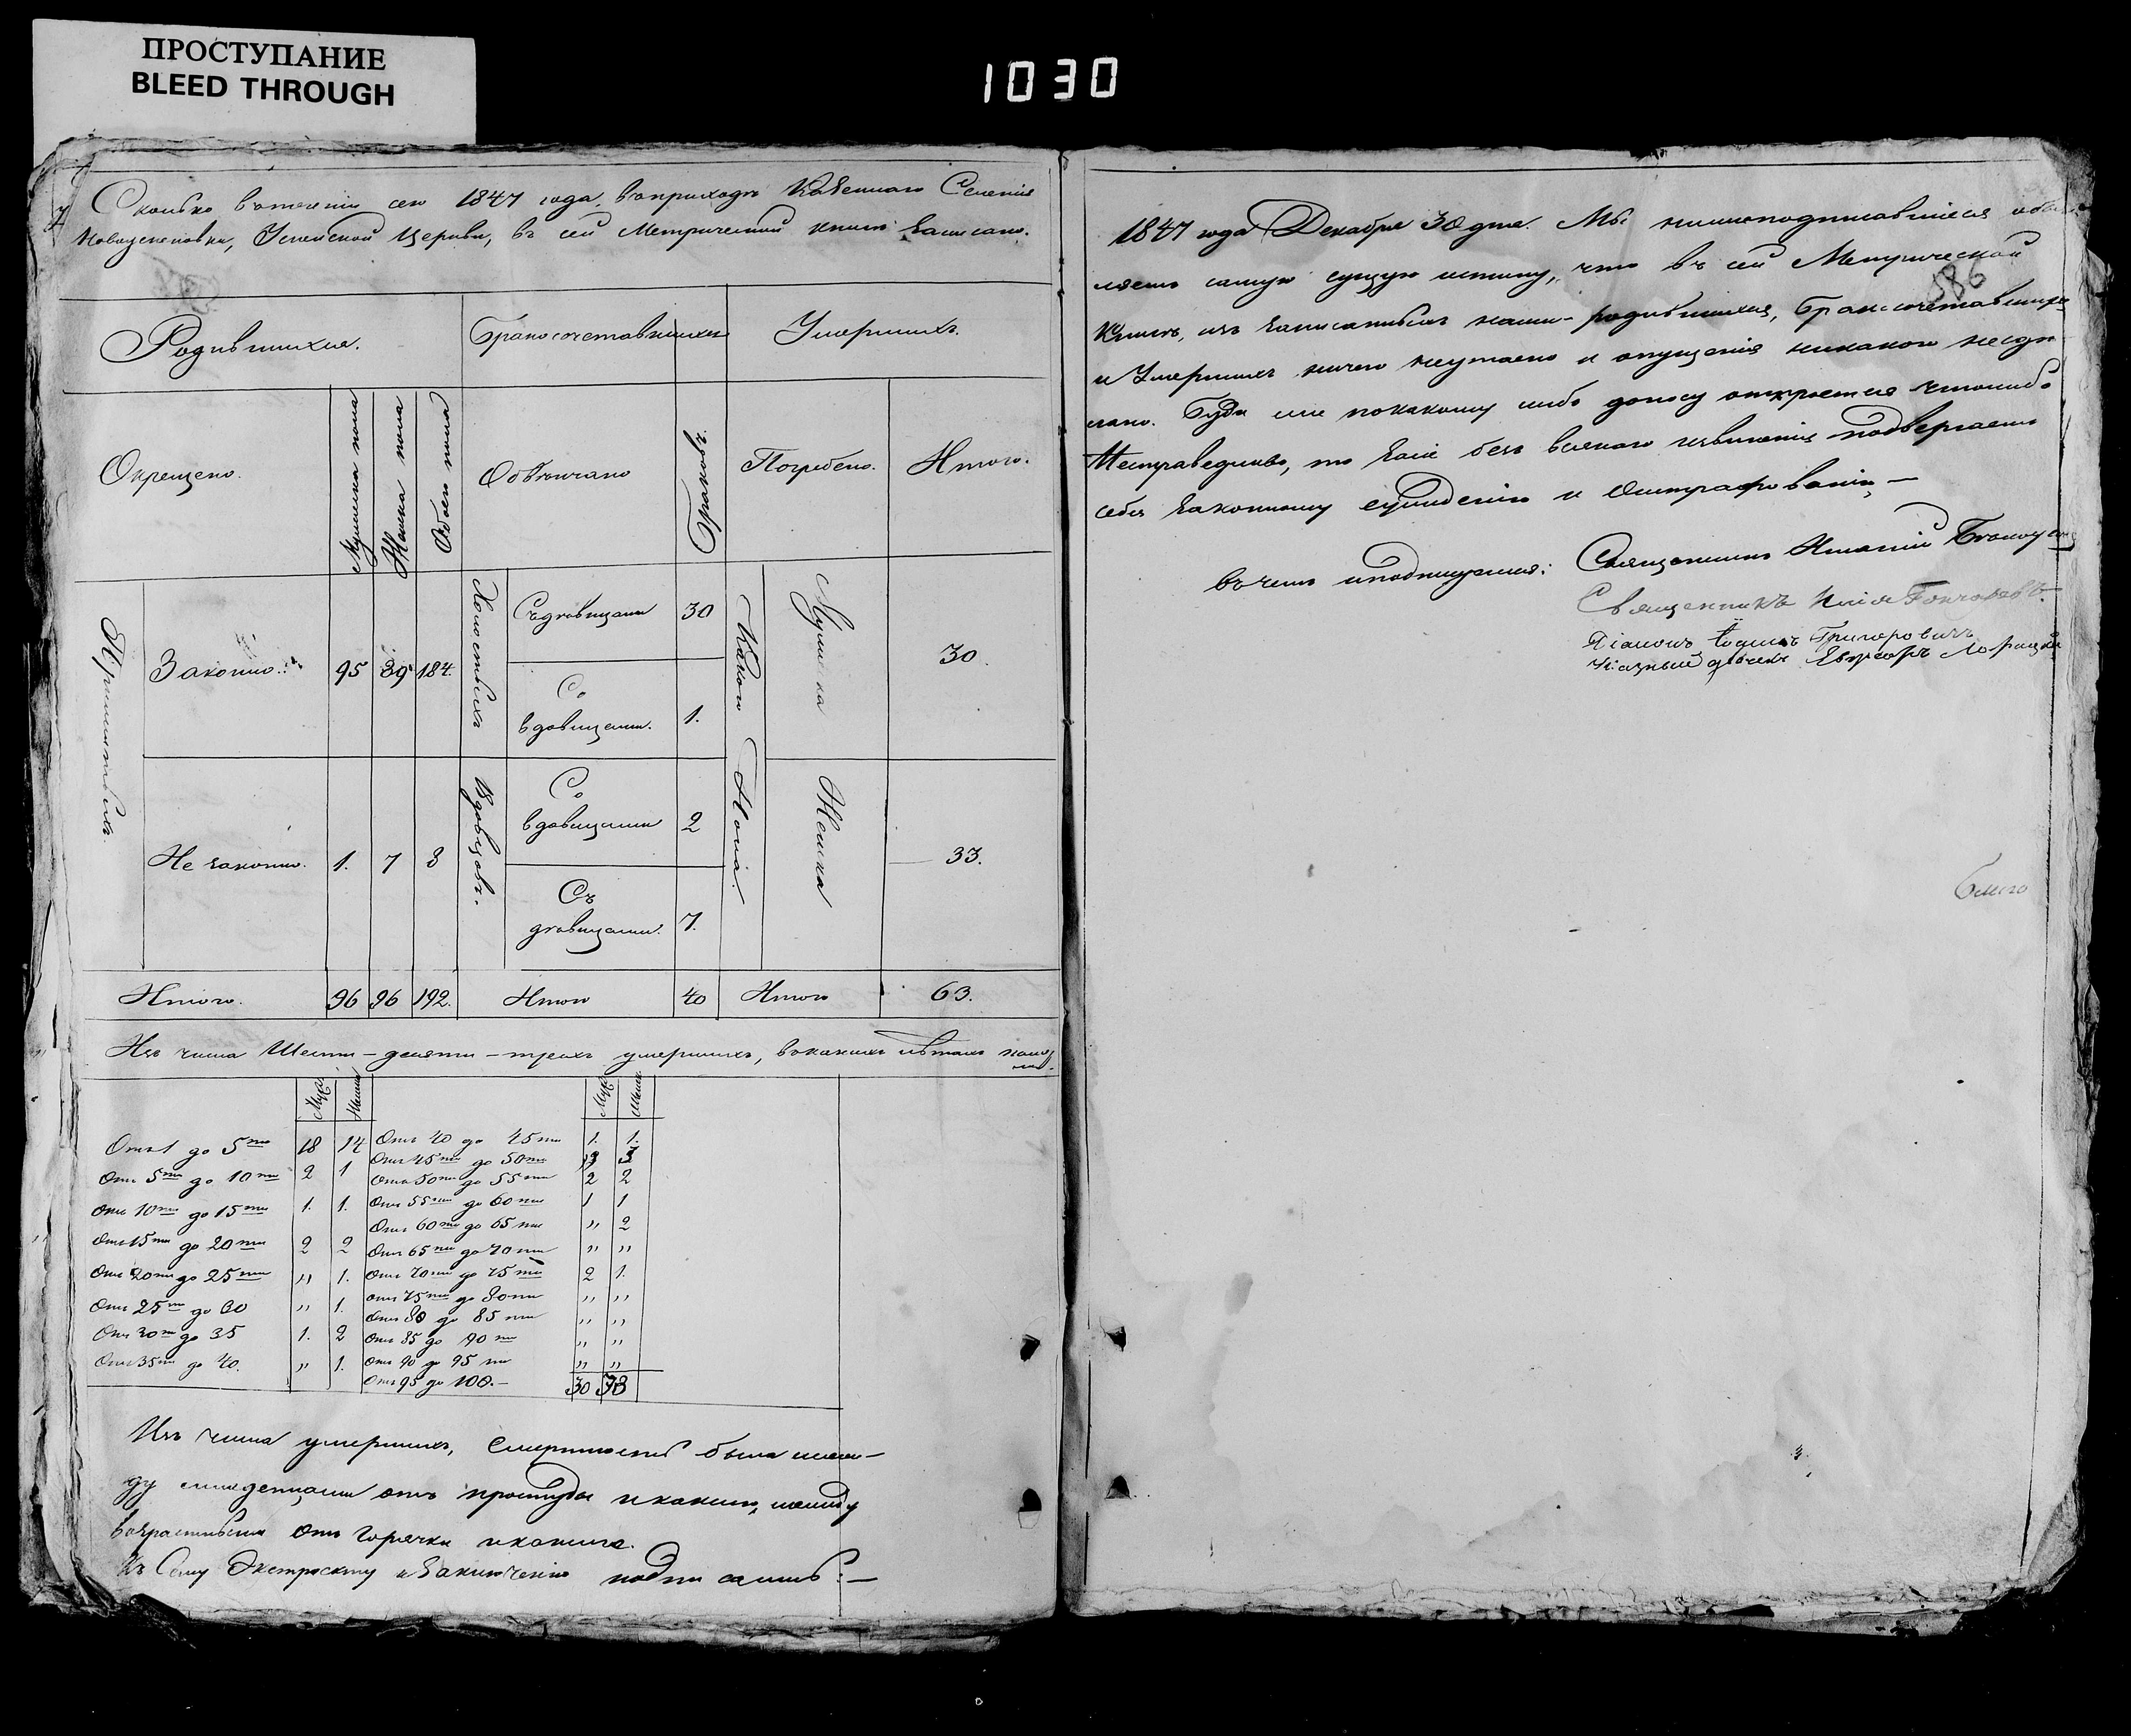 ПРОСТУПАНИЕ
BLEED THROUGH
1030
Сколько втечении сего 1847 года, вприходѣ Казеннаго Селенія
Новоуспеновки, Успенской Церкви, въ сей Метрической книгѣ записано.
Родившихся.
Бракосочетавшихся
Умершихъ.
Окрещено.
Мужеска пола
Женска пола
Обоего пола
Обвѣнчано
Браковъ.
Погребено.
Итого.
Законно.
95 89 184.
Холостыхъ
Съ дѣвицами 30
Какого Пола.
Мужеска
30.
Со
вдовицами. 1.
Не законно. 1. 7 8
Вдовцовъ.
Со
вдовицами 2
Женска
33.
Съ
дѣвицами. 7.
Итого. 96 96 192. Итого 40 Итого 63.
Изъ числа Шести-десяти-трехъ умершихъ, вкакихъ лѣтахъ
Муж. Женска Муж. Женск.
Отъ 1 до 5ти 18 14 Отъ 40 до 45ти 1. 1.
Отъ 5ти до 10ти 2 1 Отъ 45ти до 50ти 3 3
Отъ 50ти до 55ти 2 2
Отъ 10ти до 15ти 1. 1. Отъ 55ти до 60ти 1 1
Отъ 60ти до 65ти „ 2
Отъ 15ти до 20ти 2 2 Отъ 65ти до 70ти „ „
Отъ 20ти до 25ти „ 1. Отъ 70ти до 75ти 2 1.
Отъ 25ти до 30 „ 1. отъ 75ти до 80ти „ „
Отъ 80 до 85ти „ „
Отъ 30ти до 35 1. 2 Отъ 85 до 90ти „ „
Отъ 35ти до 40. „ 1. Отъ 90 до 95ти „ „
Отъ 95 до 100.— 30 33
Изъ числа умершихъ, Смертность была меж-
ду младенцами отъ простуды и кашлю, между
возрастными отъ горячки и кашля.
Къ Сему Экстракту и Заключенію подписались:—
1847 года Декабря 30 дня. Мы нижеподписавшіеся
ляемъ самую сущую истину, что въ сей Метрической
586
Книгѣ, изъ записанныхъ нами родившихся, Бракосочетавшихся
и Умершихъ ничего неутаено и опущенія никакого несдѣ
лано. Буде же покакому либо доносу откроется чтолибо
Несправедливо, то засіе безъ всякаго извиненія подвергаемъ
себя законному сужденію и Оштрафованію.—
въ чемъ иподпишемся: Священникъ Игнатій
Священникъ Илія Гончаровъ.
Діаконъ Григоровичъ